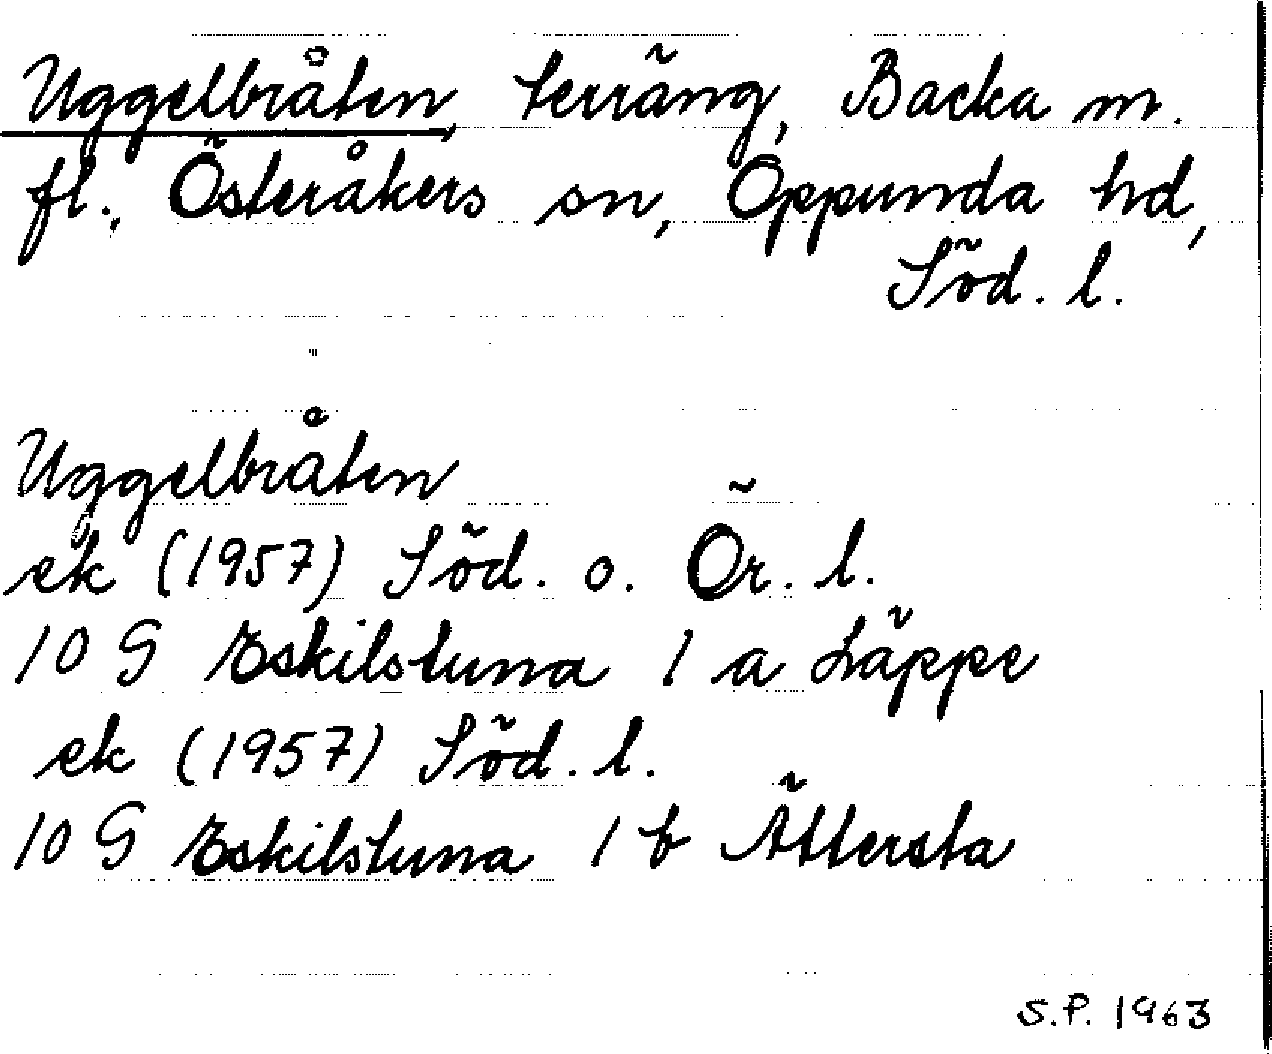 Uggelbråten, terräng, Backa m.
fl., Österåkers sn, Oppunda hd,
Söd. l.
Uggelbråten
ek (1957) Söd. o. Ör. l.
10 G Eskilstuna 1 a Läppe
ek (1957) Söd. l.
10 G Eskilstuna 1 b Ättersta
S.P. 1963